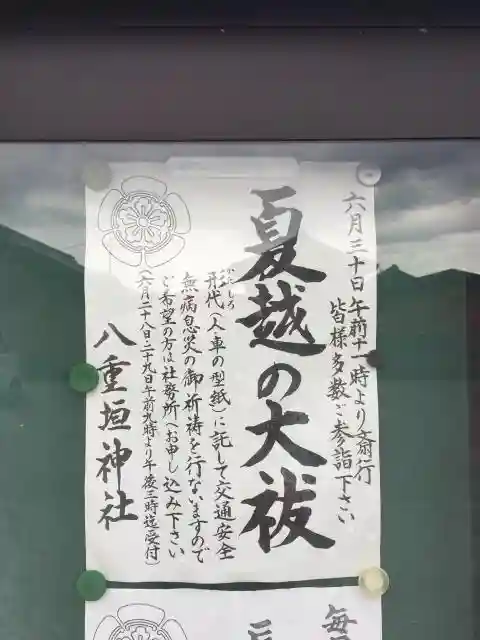 六月三十日 午前十一時より斎行
皆様多数ご参詣下さい
夏越の大祓
かたしろ
形代（人・車の型紙）に託して交通安全
無病息災の御祈祷を行ないますので
ご希望の方は社務所へお申し込み下さい
（六月二十八日・二十九日午前九時より午後三時迄受付）
八重垣神社
毎